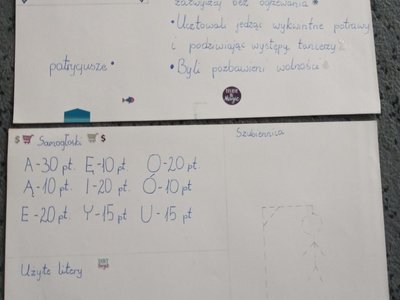 zazwyczaj bez ogrzewania
• Ucztowali jedząc wykwintne potrawy
i podziwiając występy tancerzy
patrycjusze •
• Byli pozbawieni wolności
$ Samogłoski $
Szubienica
A-30 pt. Ę-10 pt O-20 pt.
Ą-10 pt. I-20 pt. Ó-10 pt
E-20 pt. Y-15 pt U-15 pt
Użyte litery